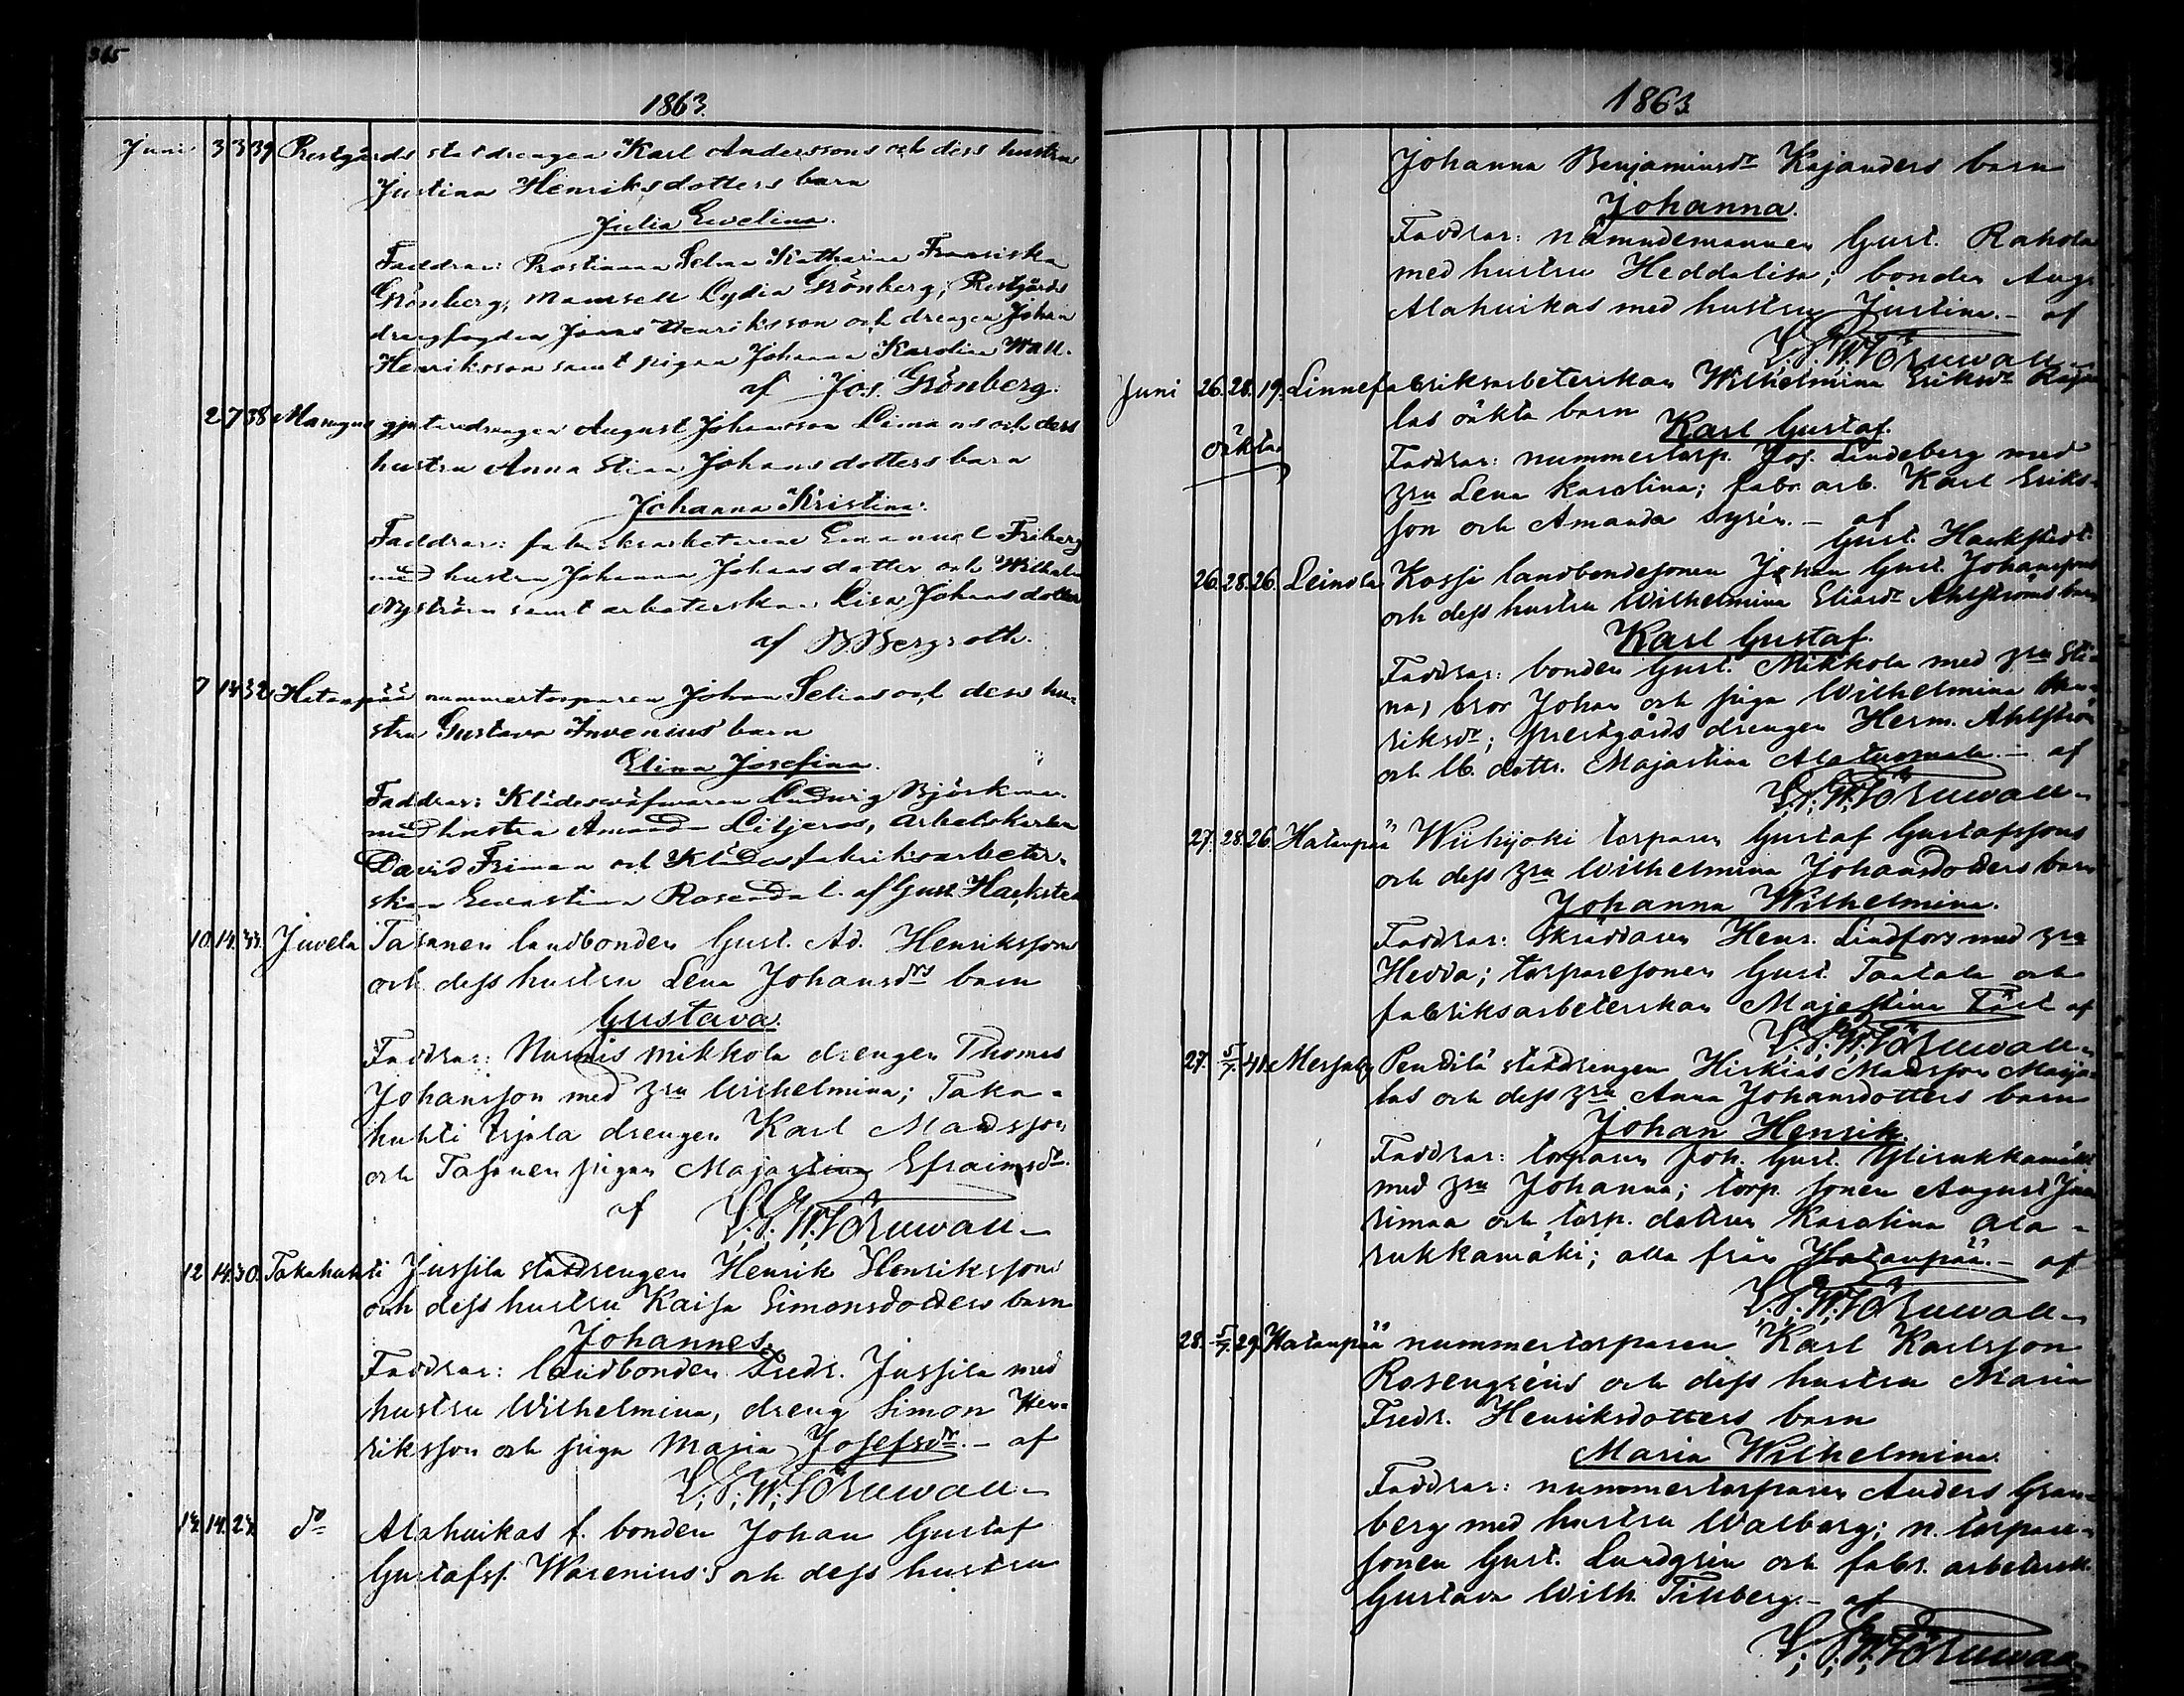 365
1863.
Juni 3 3 39 Prestgårds statdrengen Karl Anderssons och dess hustrus
Justina Henriksdotters barn
Julia Ewelina.
Faddrar: Prostinnan Selma Katharina Fransiska
Grönberg, Mamsell Lydia Grönberg, Prestgårds
drengfogden Jonas Henriksson och drengen Johan
Henriksson samt pigan Johanna Karolina Wall.
af Jos. Grönberg.
2 7 38 gjutaredrengen August Johansson Limans och dess
hustru Anna Stina Johansdotters barn
Johanna Kristina.
Faddrar: fabriksarbetaren Emanuel Friberg
med hustru Johanna Johansdotter och
Nyström samt arbeterskan Lisa Johansdotter
af B. Bergroth.
7 14 32 Hatanpää nummertorparen Johan Selins och dess hu-
stru Gustava Invenius barn
Elina Josefina.
Faddrar: Klädesväfvaren Ludvig Björkman
med hustru Amanda Liljeros, arbetskarlen
David Friman och Klädesfabriksarbeter-
skan Evastina Rosendal. af Gust. Hackstedt
10. 14. Juvela Tasanen landbonden Gust. Ad. Henrikssons
och dess hustru Lena Johansdrs barn
Gustava.
Faddrar: Mikkola drengen Thomas
Johansson med hru Wilhelmina; Taka-
huhti Erjola drengen Karl Madsson
och Tasanen pigan Majastina Efraimsdr
af L. G. W. Törnwall
12. 14. 30. Takahuhti Jussila statdrengen Henrik Henrikssons
och dess hustru Kaisa Simonsdotters barn
Johannes.
Faddrar: landbonden Fredr. Jussila med
hustru Wilhelmina, dreng Simon Hen-
riksson och piga Maria Josefsdr. - af
L. G. W. Törnwall
14. 14. 24. do Alahuikas f. bonden Johan Gustaf
Gustafss. Warenius's och dess hustru
1863
Johanna Benjaminsdr Kajanders barn
Johanna.
Faddrar: nämndemannen Gust. Rahola
med hustru Heddalisa; bonden Aug.
Alahuikas med hustru Justina. - af
L. G. W. Törnwall
Juni 26. 28. 19. Linnefabriksarbeterskan Wilhelmina Eriksdr
las oäkta barn
Karl Gustaf.
oäkta
Faddrar: nummertorp. Jos. Lindeberg med
hru Lena Karolina; fabr. arb. Karl Eriks-
son och Amanda Syrén. - af
Gust. Hackstedt
26. 28. 26. Leinola Kossi landbondesonen Johan Gust. Johanssons
och dess hustru Wilhelmina Eliasdr Ahlströms barn
Karl Gustaf.
Faddrar: bonden Gust. Mikkola med hru Sti-
na, bror Johan och piga Wilhelmina Hen-
riksdr; Prestgårds drengen Herm. Ahlström
och lb. dottr. Majastina Alatuomala. - af
L. G. W. Törnwall
27. 28. 26. Hatanpää Wiikijoki torparen Gustaf Gustafssons
och dess hru Wilhelmina Johansdotters barn
Johanna Wilhelmina.
Faddrar: skräddaren Henr. Lindfors med hru
Hedda; torparesonen Gust. Taatala och
fabriksarbeterskan Majastina Färt af
L. G. W. Törnwall
27. 5/7. 41. Messuby Penttilä statdrengen Hiskias Madsson Marja-
las och dess hru Anna Johansdotters barn
Johan Henrik.
Faddrar: torparen Joh. Gust. Ylirukkamäki
med hru Johanna; torp. sonen August
rimaa och torp. dottren Karolina Ala-
rukkamäki; alla från Hatanpää. - af
L. G. W. Törnwall
28. 5/7. 29. Hatanpää nummertorparen Karl Karlsson
Rosengréns och dess hustru Maria
Fredr. Henriksdotters barn
Maria Wilhelmina.
Faddrar: nummertorparen Anders Gran-
berg med hustru Walborg; n. torpare-
sonen Gust. Lundgrén och fabr. arbetersk.
Gustava Wilh. Tillberg. - af
L. G. W. Törnwall